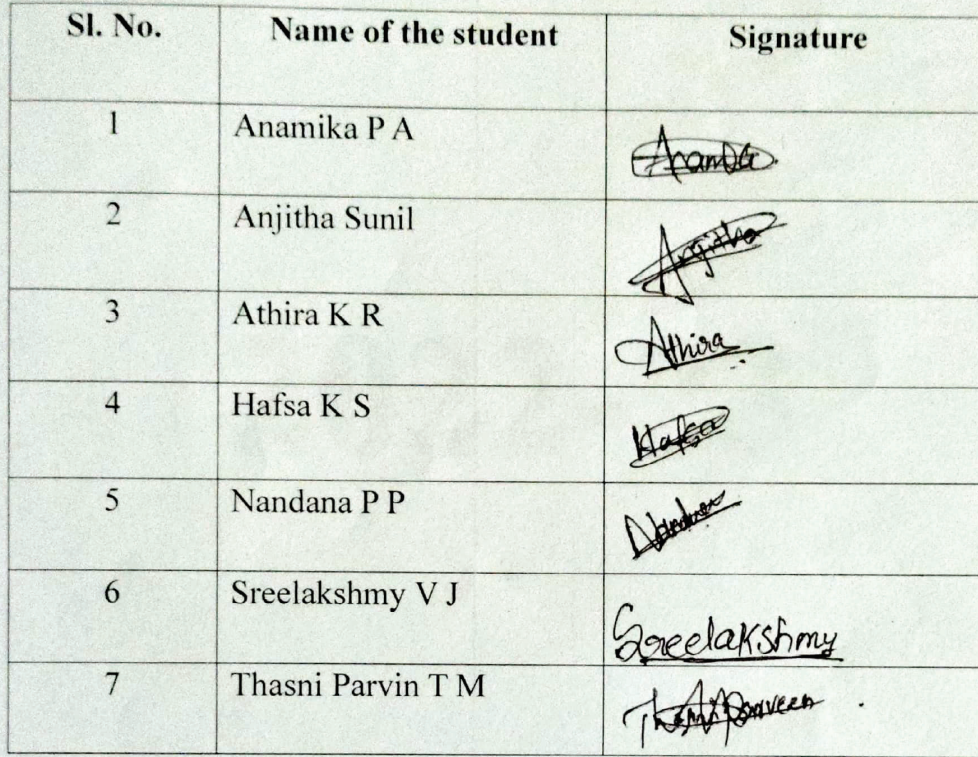 Sl. No. Name of the student Signature
1 Anamika P A
2 Anjitha Sunil Anjitha
3 Athira K R Athira
4 Hafsa K S Hafsa
5 Nandana P P
6 Sreelakshmy V J Sreelakshmy
7 Thasni Parvin T M